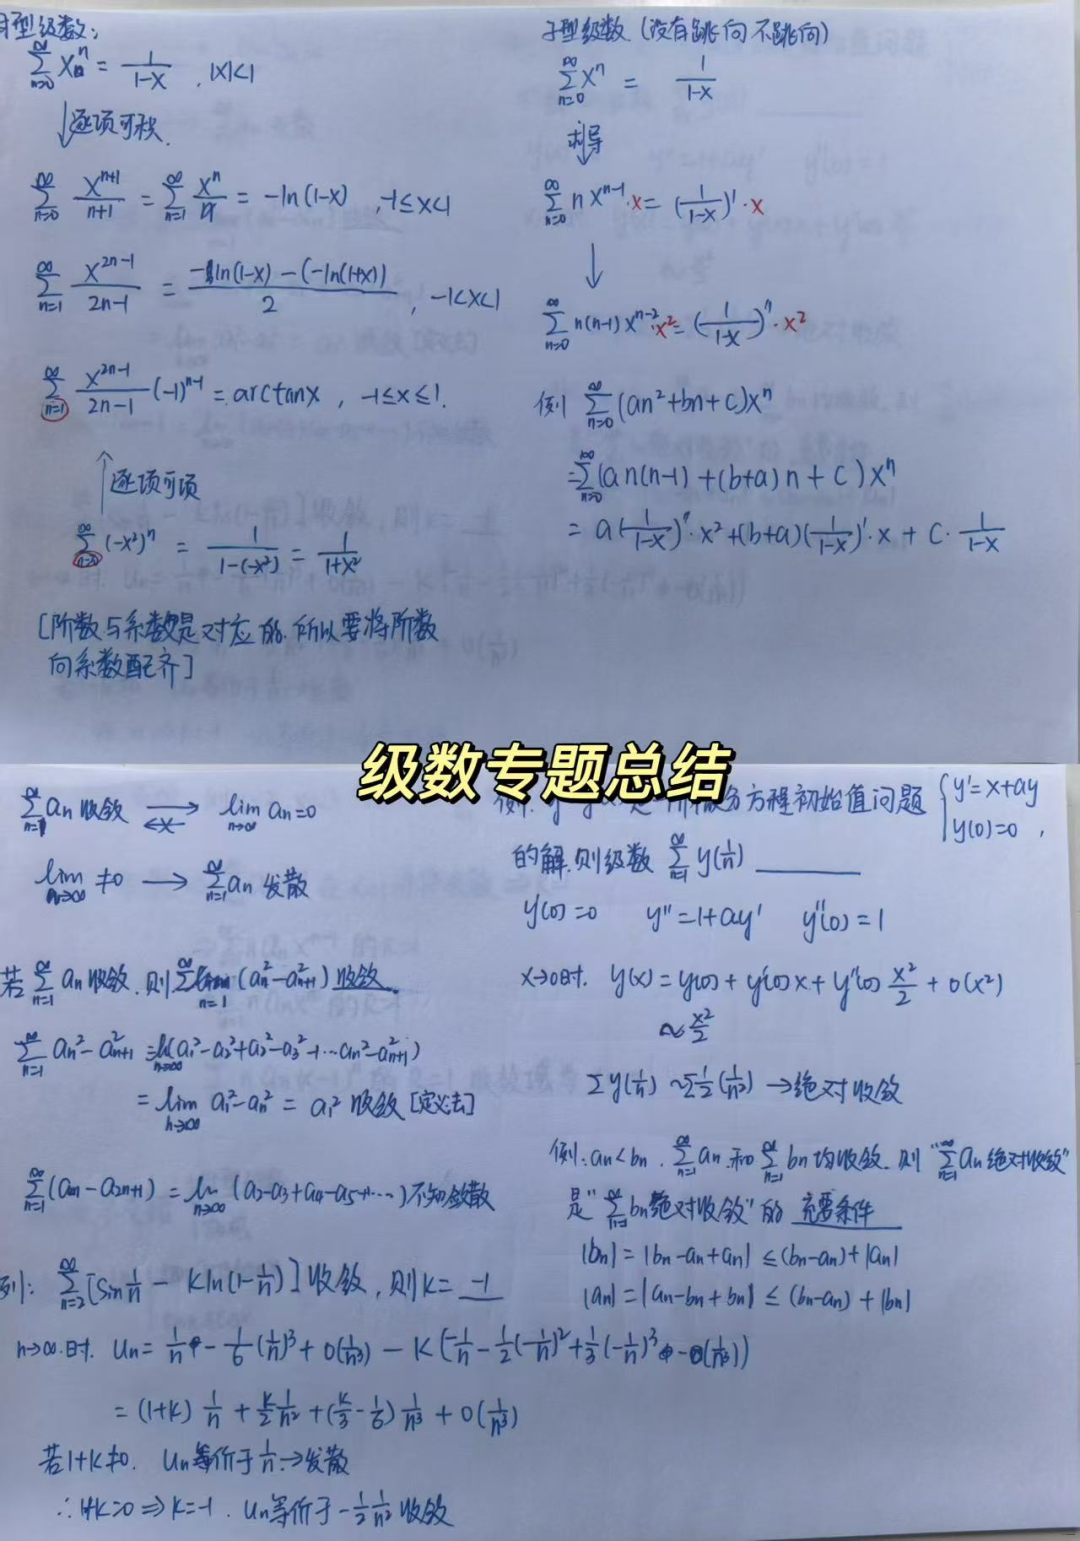 型级数:
∑_{n=0}^{∞} x^n = 1/(1-x) , |x|<1
↓逐项可积
∑_{n=0}^{∞} x^{n+1}/(n+1) = ∑_{n=1}^{∞} x^n/n = -ln(1-x) -1≤x<1
∑_{n=1}^{∞} x^{2n-1}/(2n-1) = (-ln(1-x)-(-ln(1+x)))/2 , -1<x<1
∑_{n=1}^{∞} x^{2n-1}/(2n-1) (-1)^{n-1} = arctanx , -1≤x≤1.
↑逐项可项
∑_{n=0}^{∞} (-x²)^n = 1/(1-(-x²)) = 1/(1+x²)
[阶数与系数是对应的.所以要将阶数
向系数配齐]
子型级数(没有跳向不跳向)
∑_{n=0}^{∞} x^n = 1/(1-x)
求导↓
∑_{n=0}^{∞} n x^{n-1}·x = (1/(1-x))'·x
↓
∑_{n=0}^{∞} n(n-1) x^{n-2}·x² = (1/(1-x))''·x²
例 ∑_{n=0}^{∞} (an²+bn+c)x^n
=∑_{n=0}^{∞} (an(n-1)+(b+a)n+c)x^n
= a(1/(1-x))''·x²+(b+a)(1/(1-x))'·x+c·1/(1-x)
级数专题总结
∑_{n=1}^{∞} an 收敛 ⟶ ⟵× lim_{n→∞} an=0
lim_{n→∞} ≠0 ⟶ ∑_{n=1}^{∞} an 发散
若 ∑_{n=1}^{∞} an 收敛.则 ∑_{n=1} (an²-a²n+1) 收敛
∑_{n=1}^{∞} an²-a²n+1 = lim_{n→∞}(a1²-a2²+a2²-a3²+…an²-a²n+1)
= lim_{n→∞} a1²-an² = a1² 收敛[定义法]
∑_{n=1}^{∞} (a2n-a2n+1) = lim_{n→∞} (a2-a3+a4-a5+…) 不知敛散
例: ∑_{n=2}^{∞} [sin 1/n - kln(1-1/n)] 收敛, 则k= -1
n→∞.时. Un= 1/n - 1/6(1/n)³+o(1/n³) - k(-1/n - 1/2(-1/n)²+1/3(-1/n)³-o(1/n³))
= (1+k) 1/n + k/2 1/n² + (k/3-1/6) 1/n³ + o(1/n³)
若1+k≠0. Un等价于 1/n.→发散
∴1+k=0⇒k=-1 . Un等价于 -1/2 1/n² 收敛
方程初始值问题 {y'=x+ay
y(0)=0 ,
的解.则级数 ∑_{n=1}^{∞} y(1/n) ______
y(0)=0 y''=1+ay' y''(0)=1
x→0时. y(x)=y(0)+y'(0)x+y''(0) x²/2 + o(x²)
~ x²/2
∑y(1/n) ~∑1/2(1/n²) →绝对收敛
例:an<bn . ∑_{n=1}^{∞} an.和 ∑_{n=1}^{∞} bn 均收敛. 则 "∑_{n=1}^{∞} an绝对收敛"
是"∑_{n=1}^{∞} bn绝对收敛"的 充要条件
|bn|=|bn-an+an| ≤(bn-an)+|an|
|an|=|an-bn+bn| ≤(bn-an)+|bn|